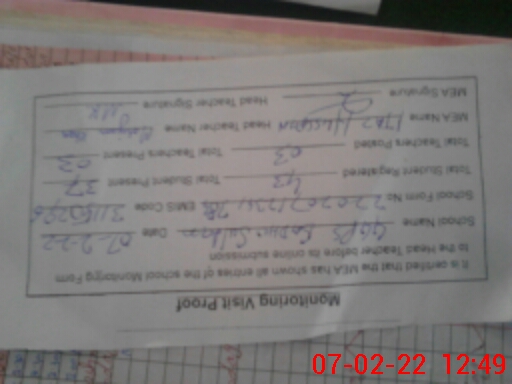 Monitoring Visit Proof
It is certified that the MEA has shown all entries of the school Monitoring Form
to the Head Teacher before its online submission
School Name GGPS Date 07-2-22
School Form No EMIS Code
Total Student Registered 43 Total Student Present 37
Total Teachers Posted 03 Total Teachers Present 03
MEA Name Head Teacher Name
MEA Signature Head Teacher Signature
07-02-22 12:49